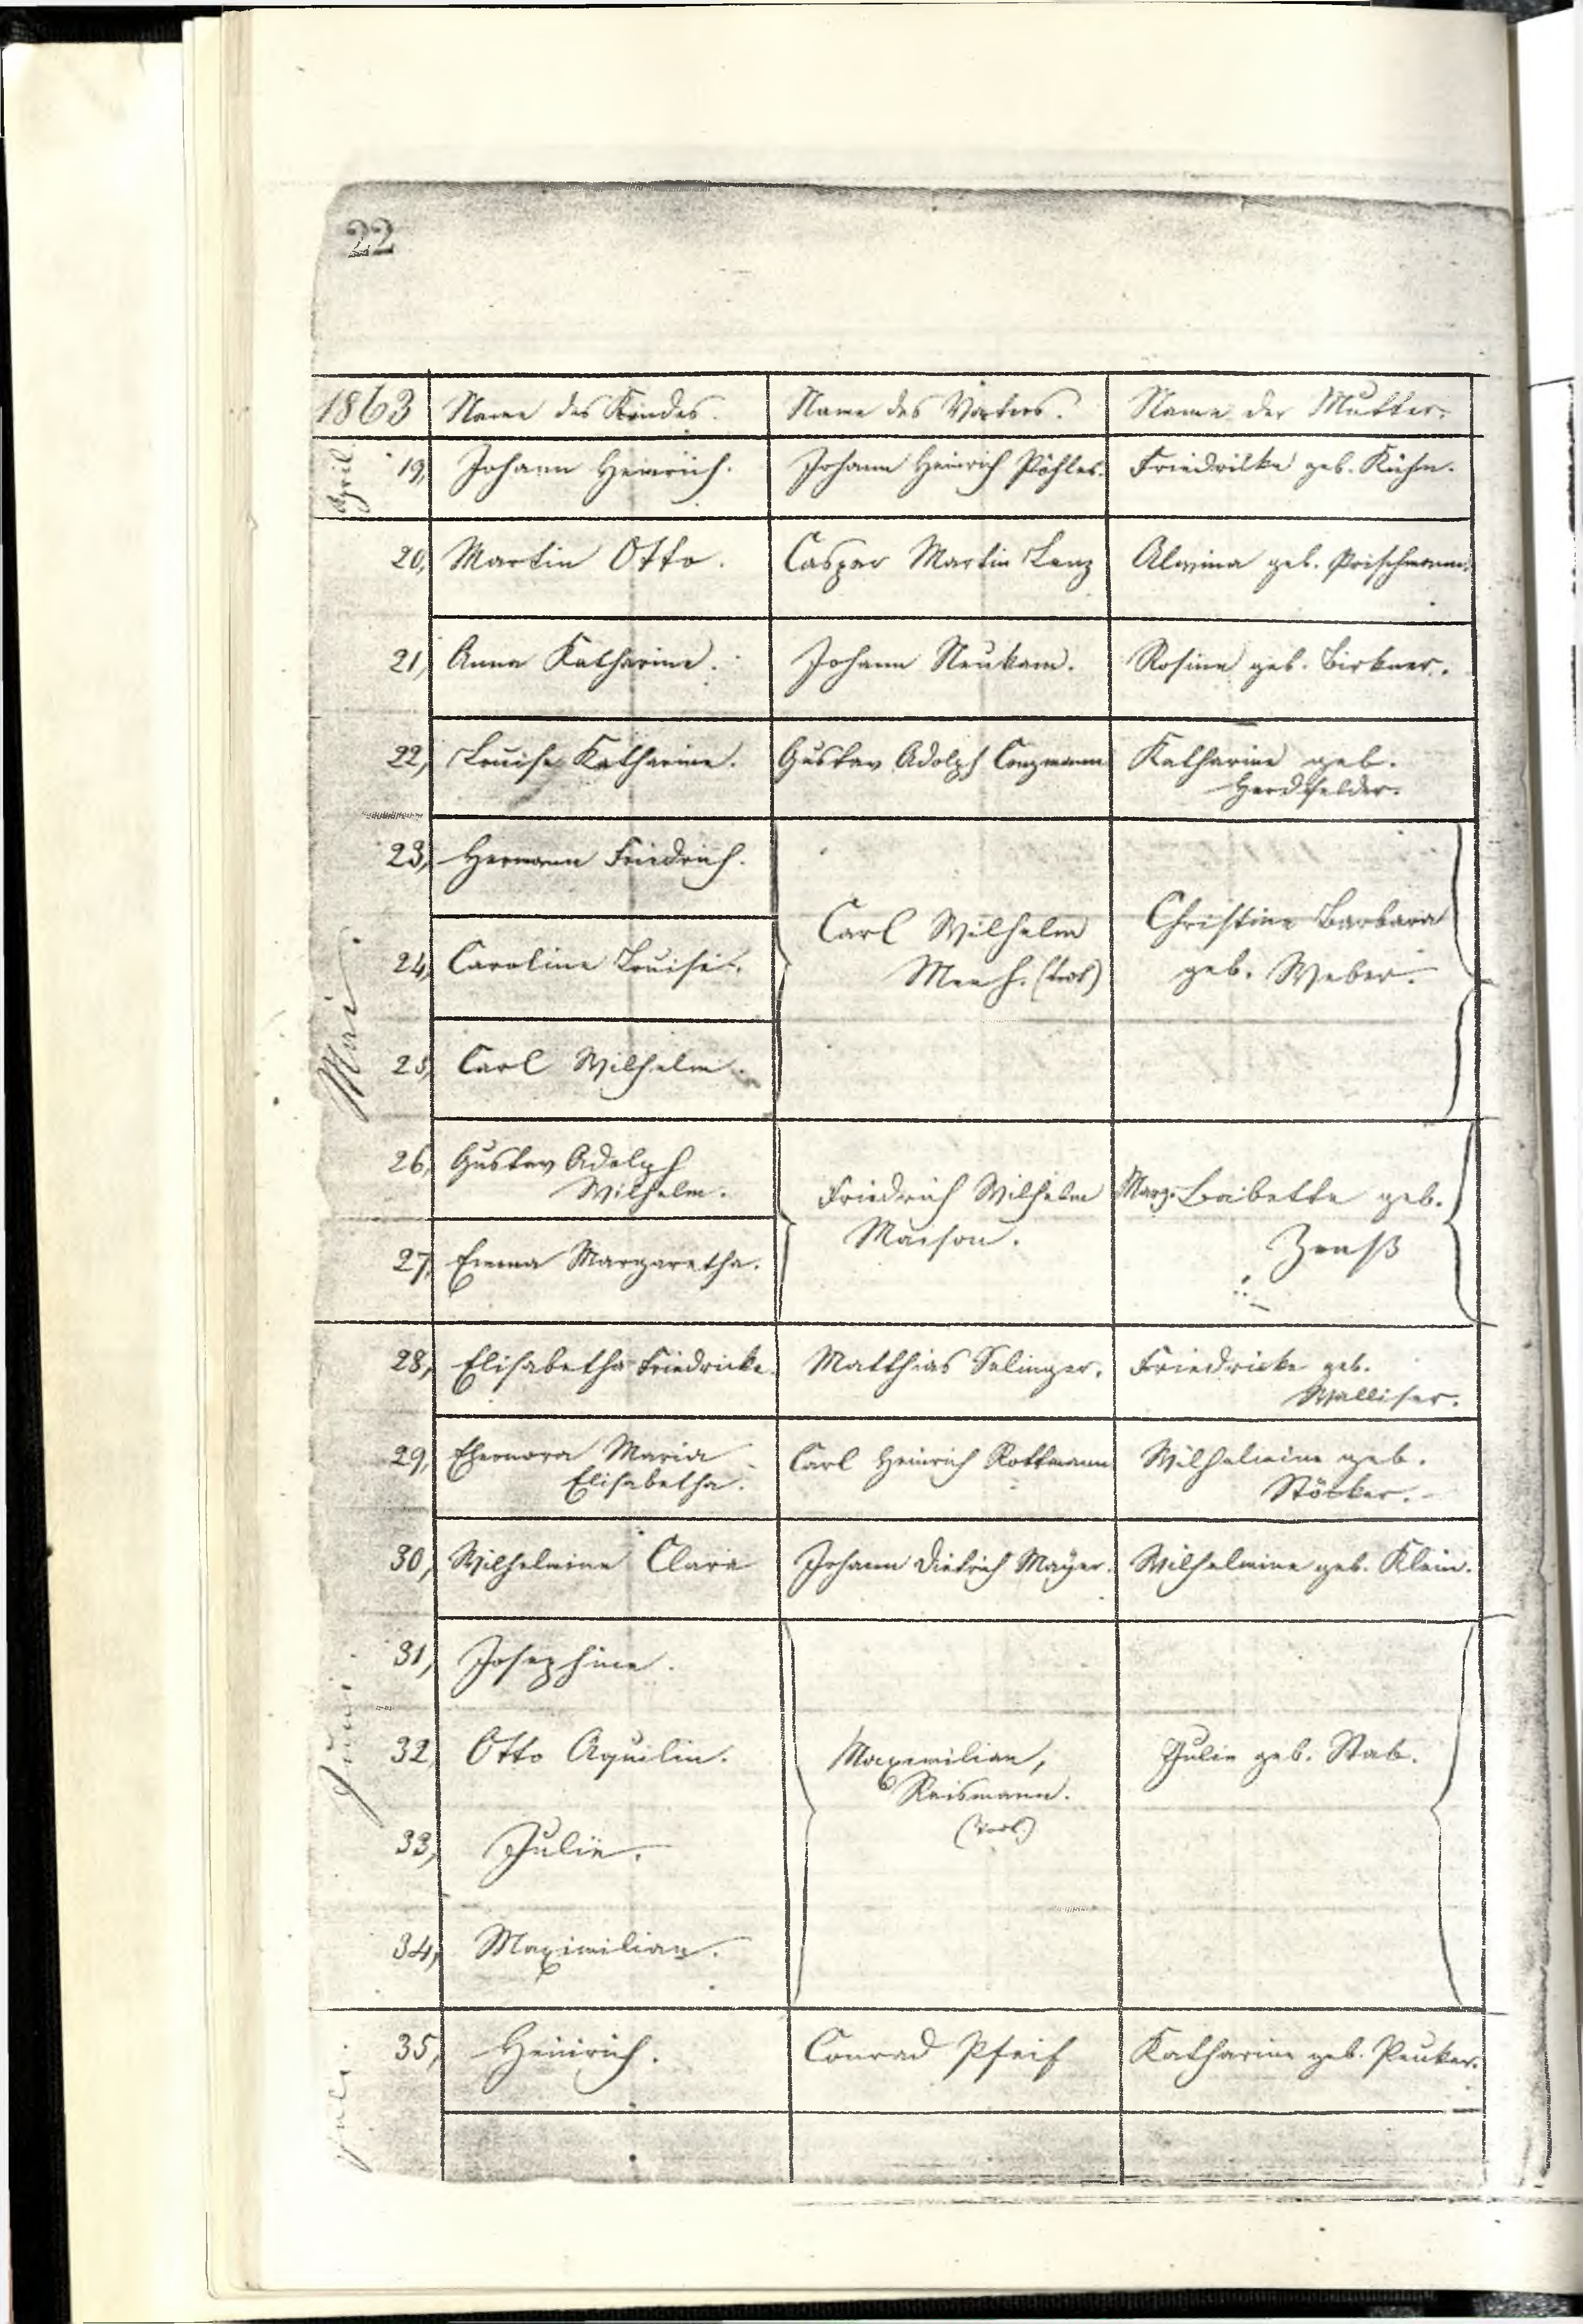 22
1863 Name des Kindes. Name des Vaters. Name der Mutter.
April 19, Johann Heinrich. Johann Heinrich Pöhler. Friedrike geb. Kühn.
20, Martin Otto. Caspar Martin Lenz Alwina geb. Prischmann.
21, Anna Katharine. Johann Neukam. Rosine geb. Birkner.
22, Louise Katharine. Gustav Adolph Conzmann Katharine geb.
Herdtfelder.
Mai.
23, Hermann Friedrich.
24, Caroline Louise. Carl Wilhelm Christine Barbara
geb. Weber.
25, Carl Wilhelm.
26, Gustav Adolph
Wilhelm.
Friedrich Wilhelm Marg. Babette geb.
Maison.
27, Emma Margaretha.
28, Elisabetha Friedricke. Matthias Salinger. Friedricke geb.
Walliser.
29, Eleonora Maria Carl Heinrich Rottmann Wilhelmine geb.
Elisabetha. Stöcker.
30, Wilhelmine Clara Johann Dietrich Mayer. Wilhelmine geb. Klein.
Juni.
31, Josephine.
32, Otto Aquilin. Maximilian, Julie geb. Stab.
Reismann.
33, Julie.
34, Maximilian.
Juli.
35, Heinrich. Conrad Pfeif Katharine geb. Peuker.